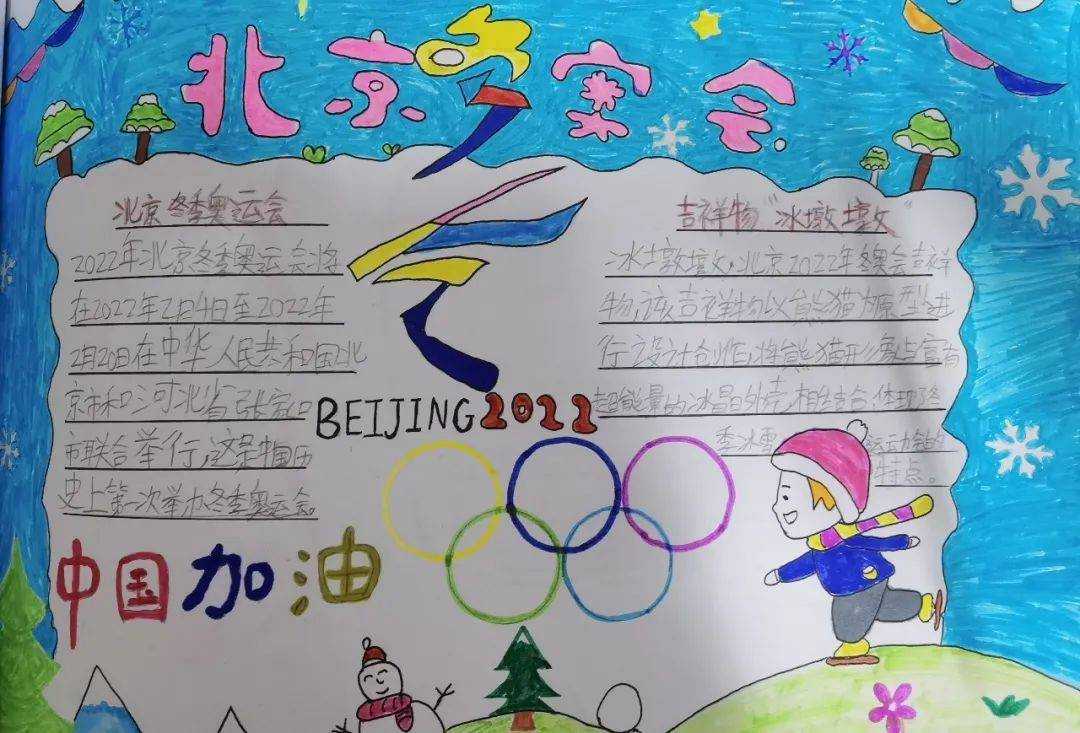 北京冬奥会
北京冬季奥运会
2022年北京冬季奥运会将
在2022年2月4日至2022年
2月20日在中华人民共和国北
京市和河北省张家口
市联合举行,这是中国历
史上第一次举办冬季奥运会。
吉祥物“冰墩墩”
冰墩墩,北京2022年冬奥会吉祥
物,该吉祥物以熊猫为原型进
行设计创作,将熊猫形象与富有
超能量的冰晶外壳相结合,体现冬
季冰雪 运动
特点。
BEIJING2022
中国加油